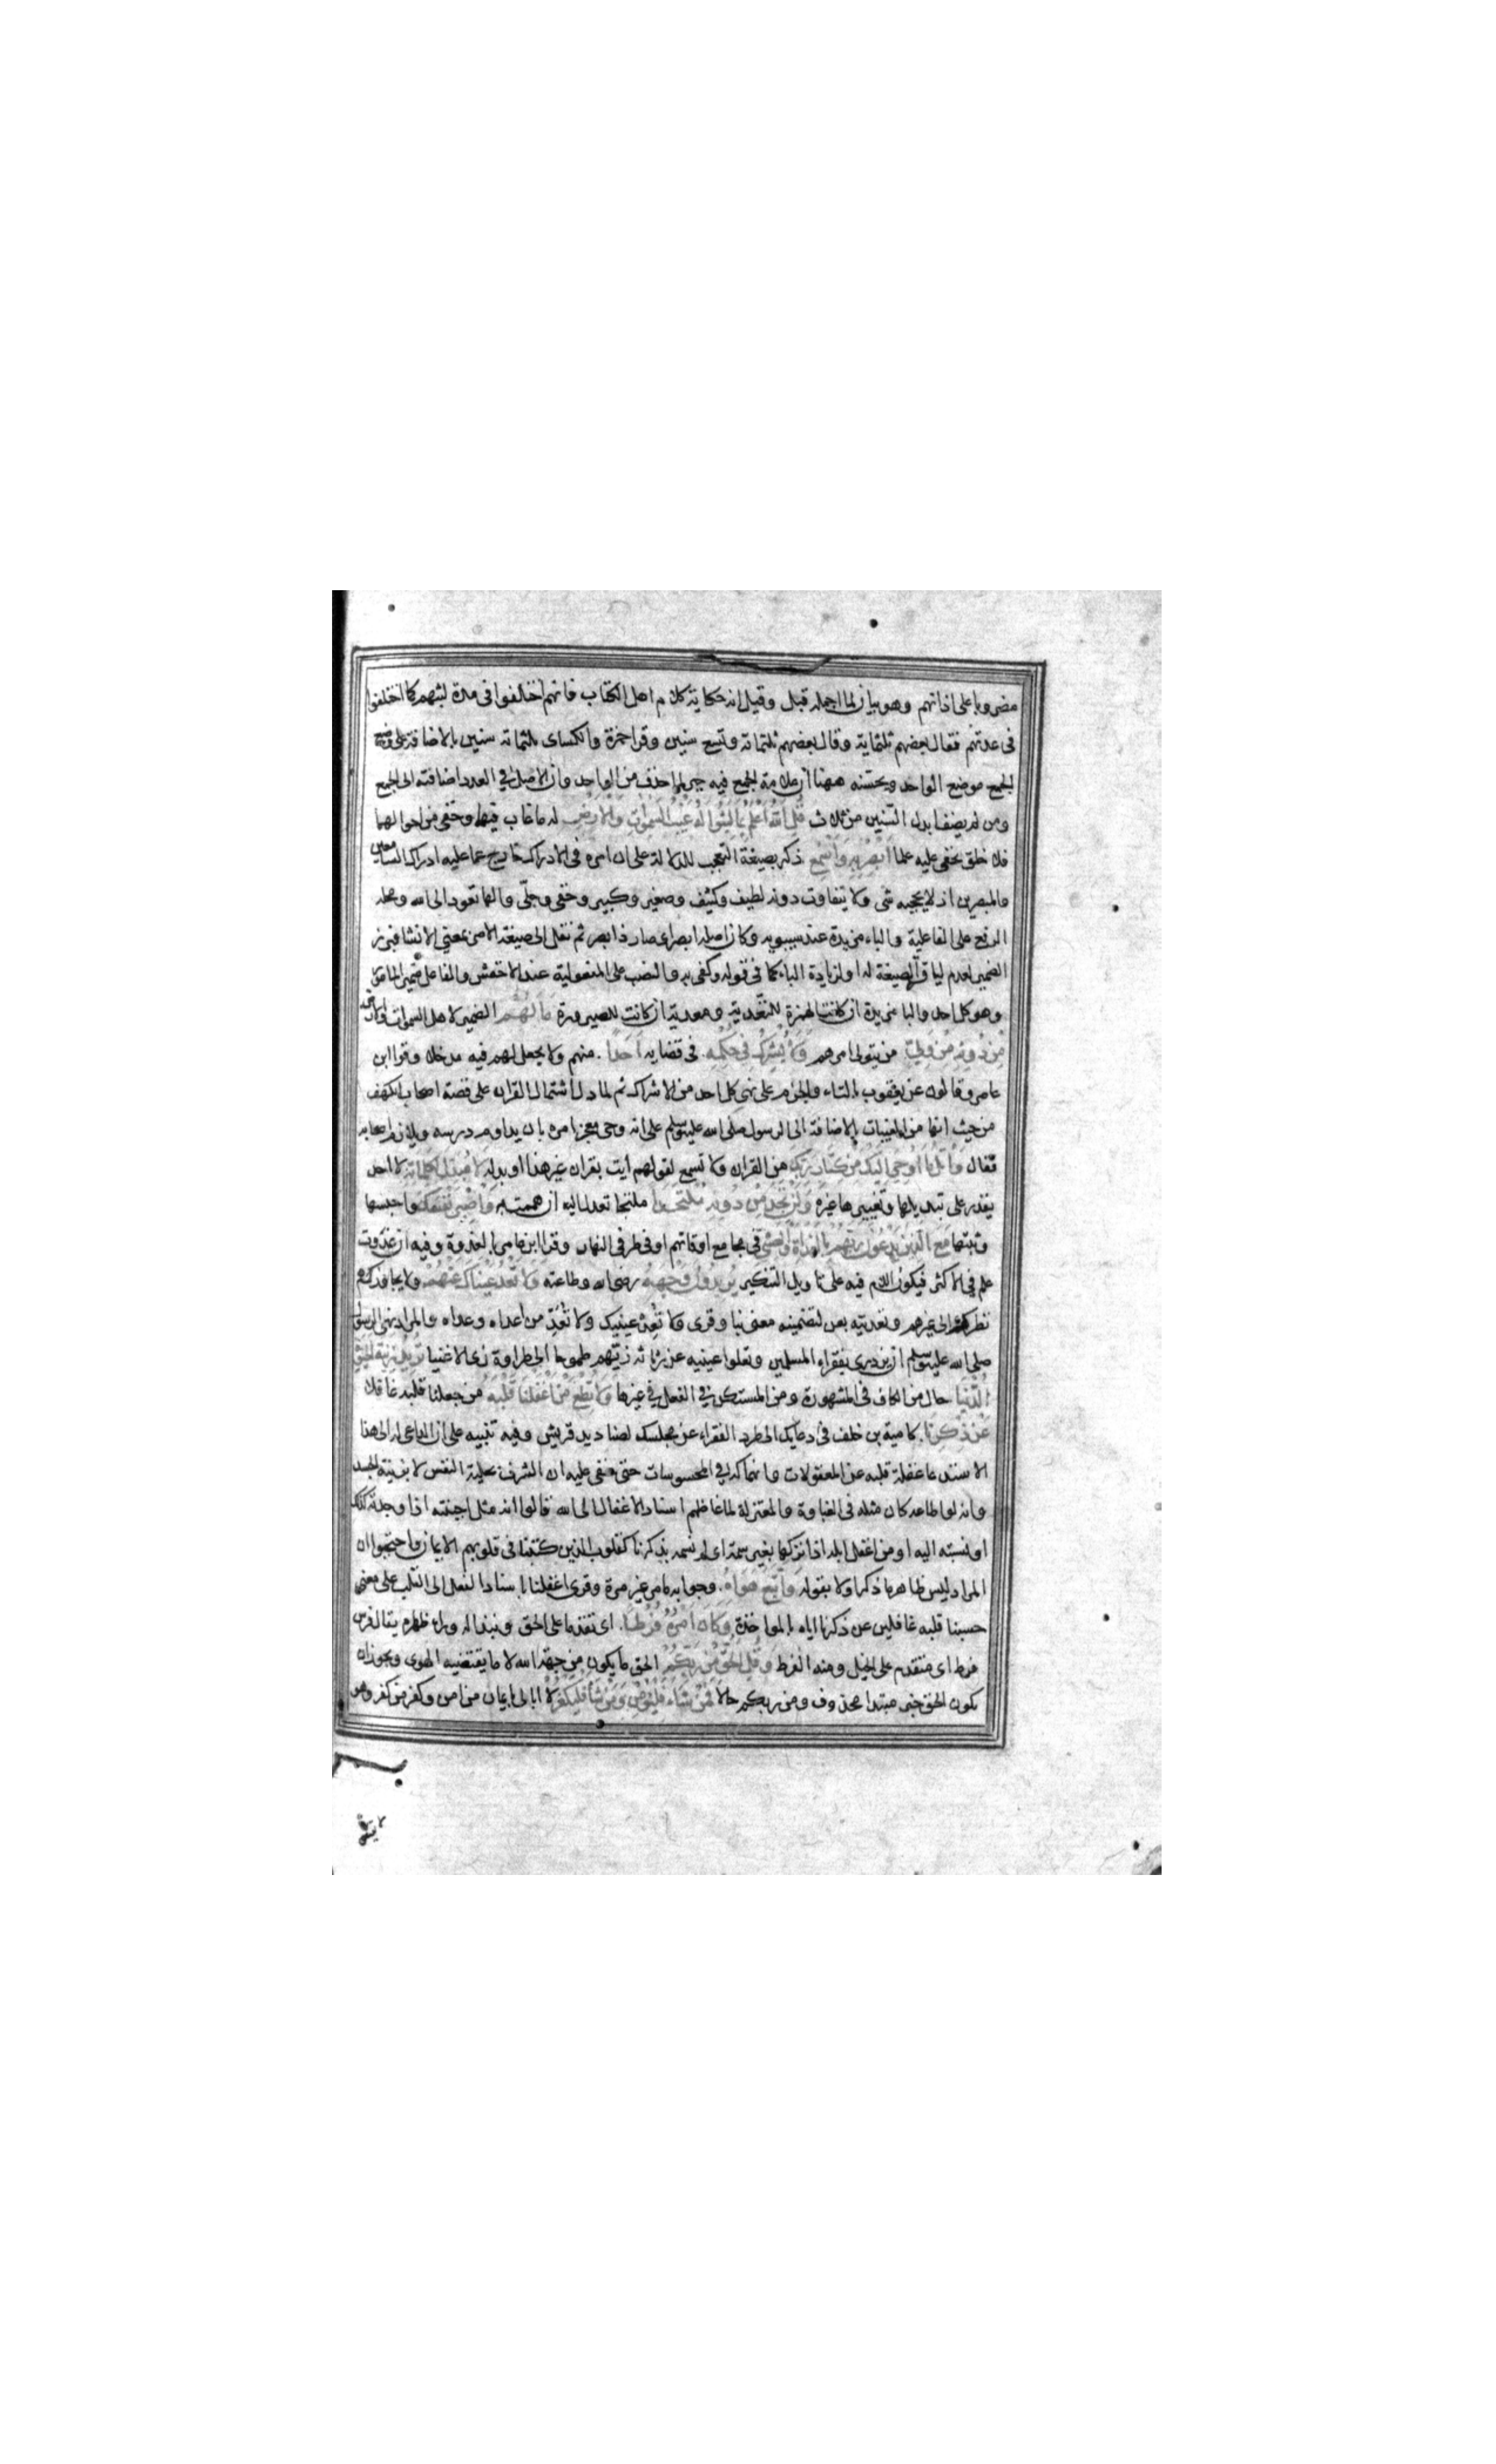 مضروبا على اذانهم وهو بيان لما اجمله قبل وقيل انه حكاية كلام اهل الكتاب فانهم اختلفوا فى مدة لبثهم كما اختلفوا
فى عدتهم فقال بعضهم ثلثمائة وقال بعضهم ثلثمائة وتسع سنين وقرا حمزة والكساى ثلثمائة سنين بالاضافة على وضع
الجمع موضع الواحد ويحسنه ههنا ان علامة الجمع فيه جبر لما حذف من الواحد وان الاصل في العدد اضافته الى الجمع
ومن لم يضف ابدل السنين من ثلاث قُلِ اللّٰهُ اَعْلَمُ بِمَا لَبِثُوا لَهُ غَيْبُ السَّمٰوَاتِ وَالْاَرْضِ له ما غاب فيهما وخفى من احوالهما
فلا خلق يخفى عليه علما اَبْصِرْ بِهِ وَاَسْمِعْ ذكر بصيغة التعجب للدلالة على ان امره فى الادراك خارج عما عليه ادراك السامعين
والمبصرين اذ لا يحجبه شى ولا يتفاوت دونه لطيف وكثيف وصغير وكبير وخفى وجلى والها تعود الى الله ومحله
الرفع على الفاعلية والباء مزيدة عند سيبويه وكان اصله ابصر اى صار ذا بصر ثم نقل الى صيغة الامر بمعنى الانشا فبرز
الضمير لعدم لياقة الصيغة له او لزيادة الباء كما فى قوله وكفى به والنصب على المفعولية عند الاخفش والفاعل ضمير المامور
وهو كل احد والبا مزيدة ان كانت الهمزة للتعدية ومعدية ان كانت للصيرورة مَا لَهُمْ الضمير لاهل السموات والارض
مِنْ دُونِهِ مِنْ وَلِيٍّ من يتولى امرهم وَلَا يُشْرِكُ فِى حُكْمِهِ فى قضايه اَحَدًا منهم ولا يجعل لهم فيه مدخلا وقرا ابن
عامر وقالون عن يعقوب بالتاء والجزم على نهى كل احد من الاشراك ثم لما دل اشتمال القران على قصة اصحاب الكهف
من حيث انها من المغيبات بالاضافة الى الرسول صلى الله عليه وسلم على انه وحى معجز امره بان يداوم درسه ويلازم اصحابه
فقال وَاتْلُ مَا اُوحِىَ اِلَيْكَ مِنْ كِتَابِ رَبِّكَ من القران ولا تسمع لقولهم ايت بقران غير هذا او بدله لَا مُبَدِّلَ لِكَلِمَاتِهِ لا احد
يقدر على تبديلها وتغييرها غيره وَلَنْ تَجِدَ مِنْ دُونِهِ مُلْتَحَدًا ملتجا تعدل اليه ان هممت به وَاصْبِرْ نَفْسَكَ واحبسها
وثبتها مَعَ الَّذِينَ يَدْعُونَ رَبَّهُمْ بِالْغَدَاةِ وَالْعَشِىِّ فى مجامع اوقاتهم او فى طرفى النهار وقرا ابن عامر بالغدوة وفيه ان غدوت
علم فى الاكثر فيكون اللام فيه على تاويل التنكير يُرِيدُونَ وَجْهَهُ رضى الله وطاعته وَلَا تَعْدُ عَيْنَاكَ عَنْهُمْ ولا يجاوزك
نظرك الى غيرهم وتعديته بعن لتضمينه معنى نبا وقرى ولا تُعْدِ عينيك ولا تُعَدِّ من اعداه وعداه والمراد نهى الرسول
صلى الله عليه وسلم ان يزدرى بفقراء المسلمين وتعلوا عينيه عن رثاثة زيهم طموحا الى طراوة زى الاغنيا تُرِيدُ زِينَةَ الْحَيٰوةِ
الدُّنْيَا حال من الكاف فى المشهورة ومن المستكن فى الفعل فى غيرها وَلَا تُطِعْ مَنْ اَغْفَلْنَا قَلْبَهُ من جعلنا قلبه غافلا
عَنْ ذِكْرِنَا كامية بن خلف فى دعايك الى طرد الفقراء عن مجلسك لصناديد قريش وفيه تنبيه على ان الداعى له الى هذا
الاستدعا غفلة قلبه عن المعقولات وانهماكه فى المحسوسات حتى خفى عليه ان الشرف بحلية النفس لا بزينة الجسد
وانه لو اطاعه كان مثله فى الغباوة والمعتزلة لما غاظهم اسناد الاغفال الى الله قالوا انه مثل اجبنته اذا وجدته كذلك
او نسبته اليه او من اغفل ابله اذا تركها بغير سمة اى لم نسمه بذكرنا كقلوب الذين كتبنا فى قلوبهم الايمان واحتجوا ان
المراد ليس ظاهر ما ذكر اولا بقوله وَاتَّبَعَ هَوَاهُ وجوابه ما مر غير مرة وقرى اغفلنا باسناد الفعل الى القلب على معنى
حسبنا قلبه غافلين عن ذكرنا اياه بالمواخذة وَكَانَ اَمْرُهُ فُرُطًا اى تقدما على الحق ونبذا له وراء ظهره يقال فرس
فرط اى متقدم على الخيل ومنه الفرط وَقُلِ الْحَقُّ مِنْ رَبِّكُمْ الحق ما يكون من جهة الله لا ما يقتضيه الهوى ويجوز ان
يكون الحق خبر مبتدا محذوف ومن ربكم حالا فَمَنْ شَاءَ فَلْيُؤْمِنْ وَمَنْ شَاءَ فَلْيَكْفُرْ لا ابالى بايمان من امن وكفر من كفر وهو